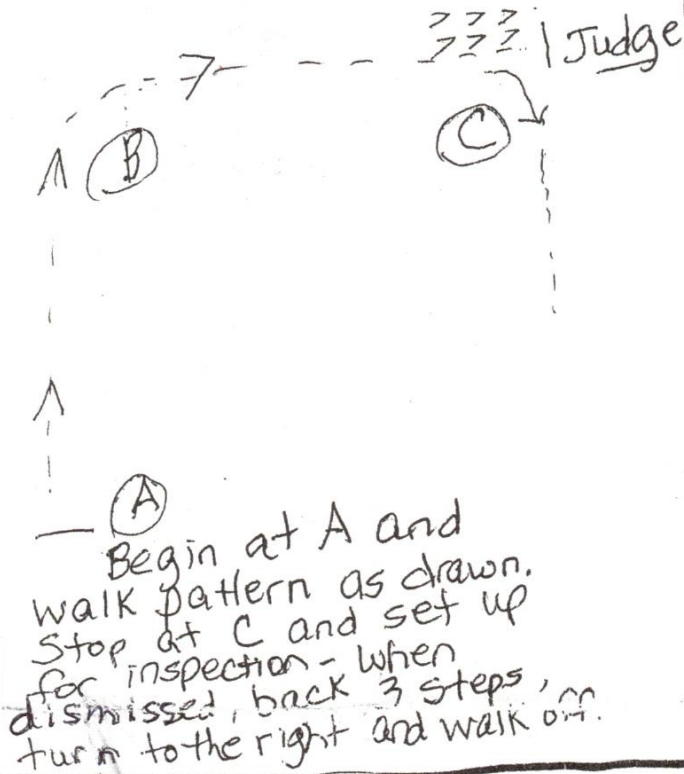 Judge
B
C
A
Begin at A and
walk pattern as drawn.
Stop at C and set up
for inspection - when
dismissed, back 3 steps,
turn to the right and walk off.